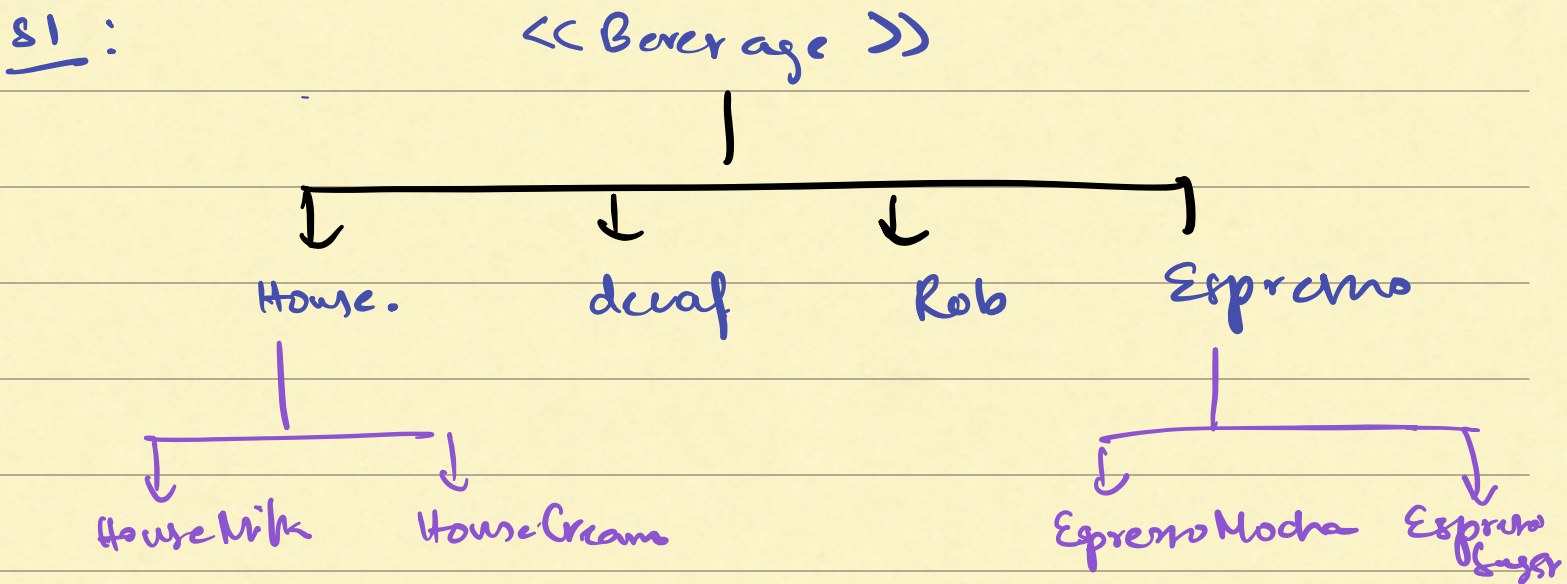 S1 : << Beverage >>
House. decaf Rob Espresso
HouseMilk HouseCream EspressoMocha Espresso
Sugar